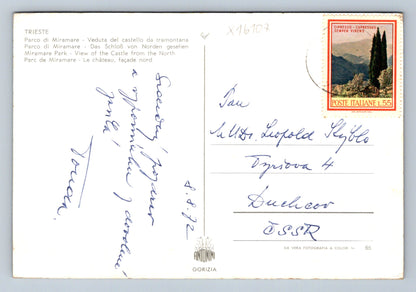 TRIESTE
Parco di Miramare - Veduta del castello da tramontana
Parco di Miramare - Das Schloß von Norden gesehen
Miramare Park - View of the Castle from the North
Parc de Miramare - Le château, façade nord
X16707
CUPRESSUS - CIPRESSO
SEMPER VIRENS
POSTE ITALIANE L.55
Srdečný pozdrav
a vzpomínku z dovolené
Pan
MUDr. Leopold Skýblo
4
Duchcov
ČSSR
8.8.72
GORIZIA
LA VERA FOTOGRAFIA A COLORI